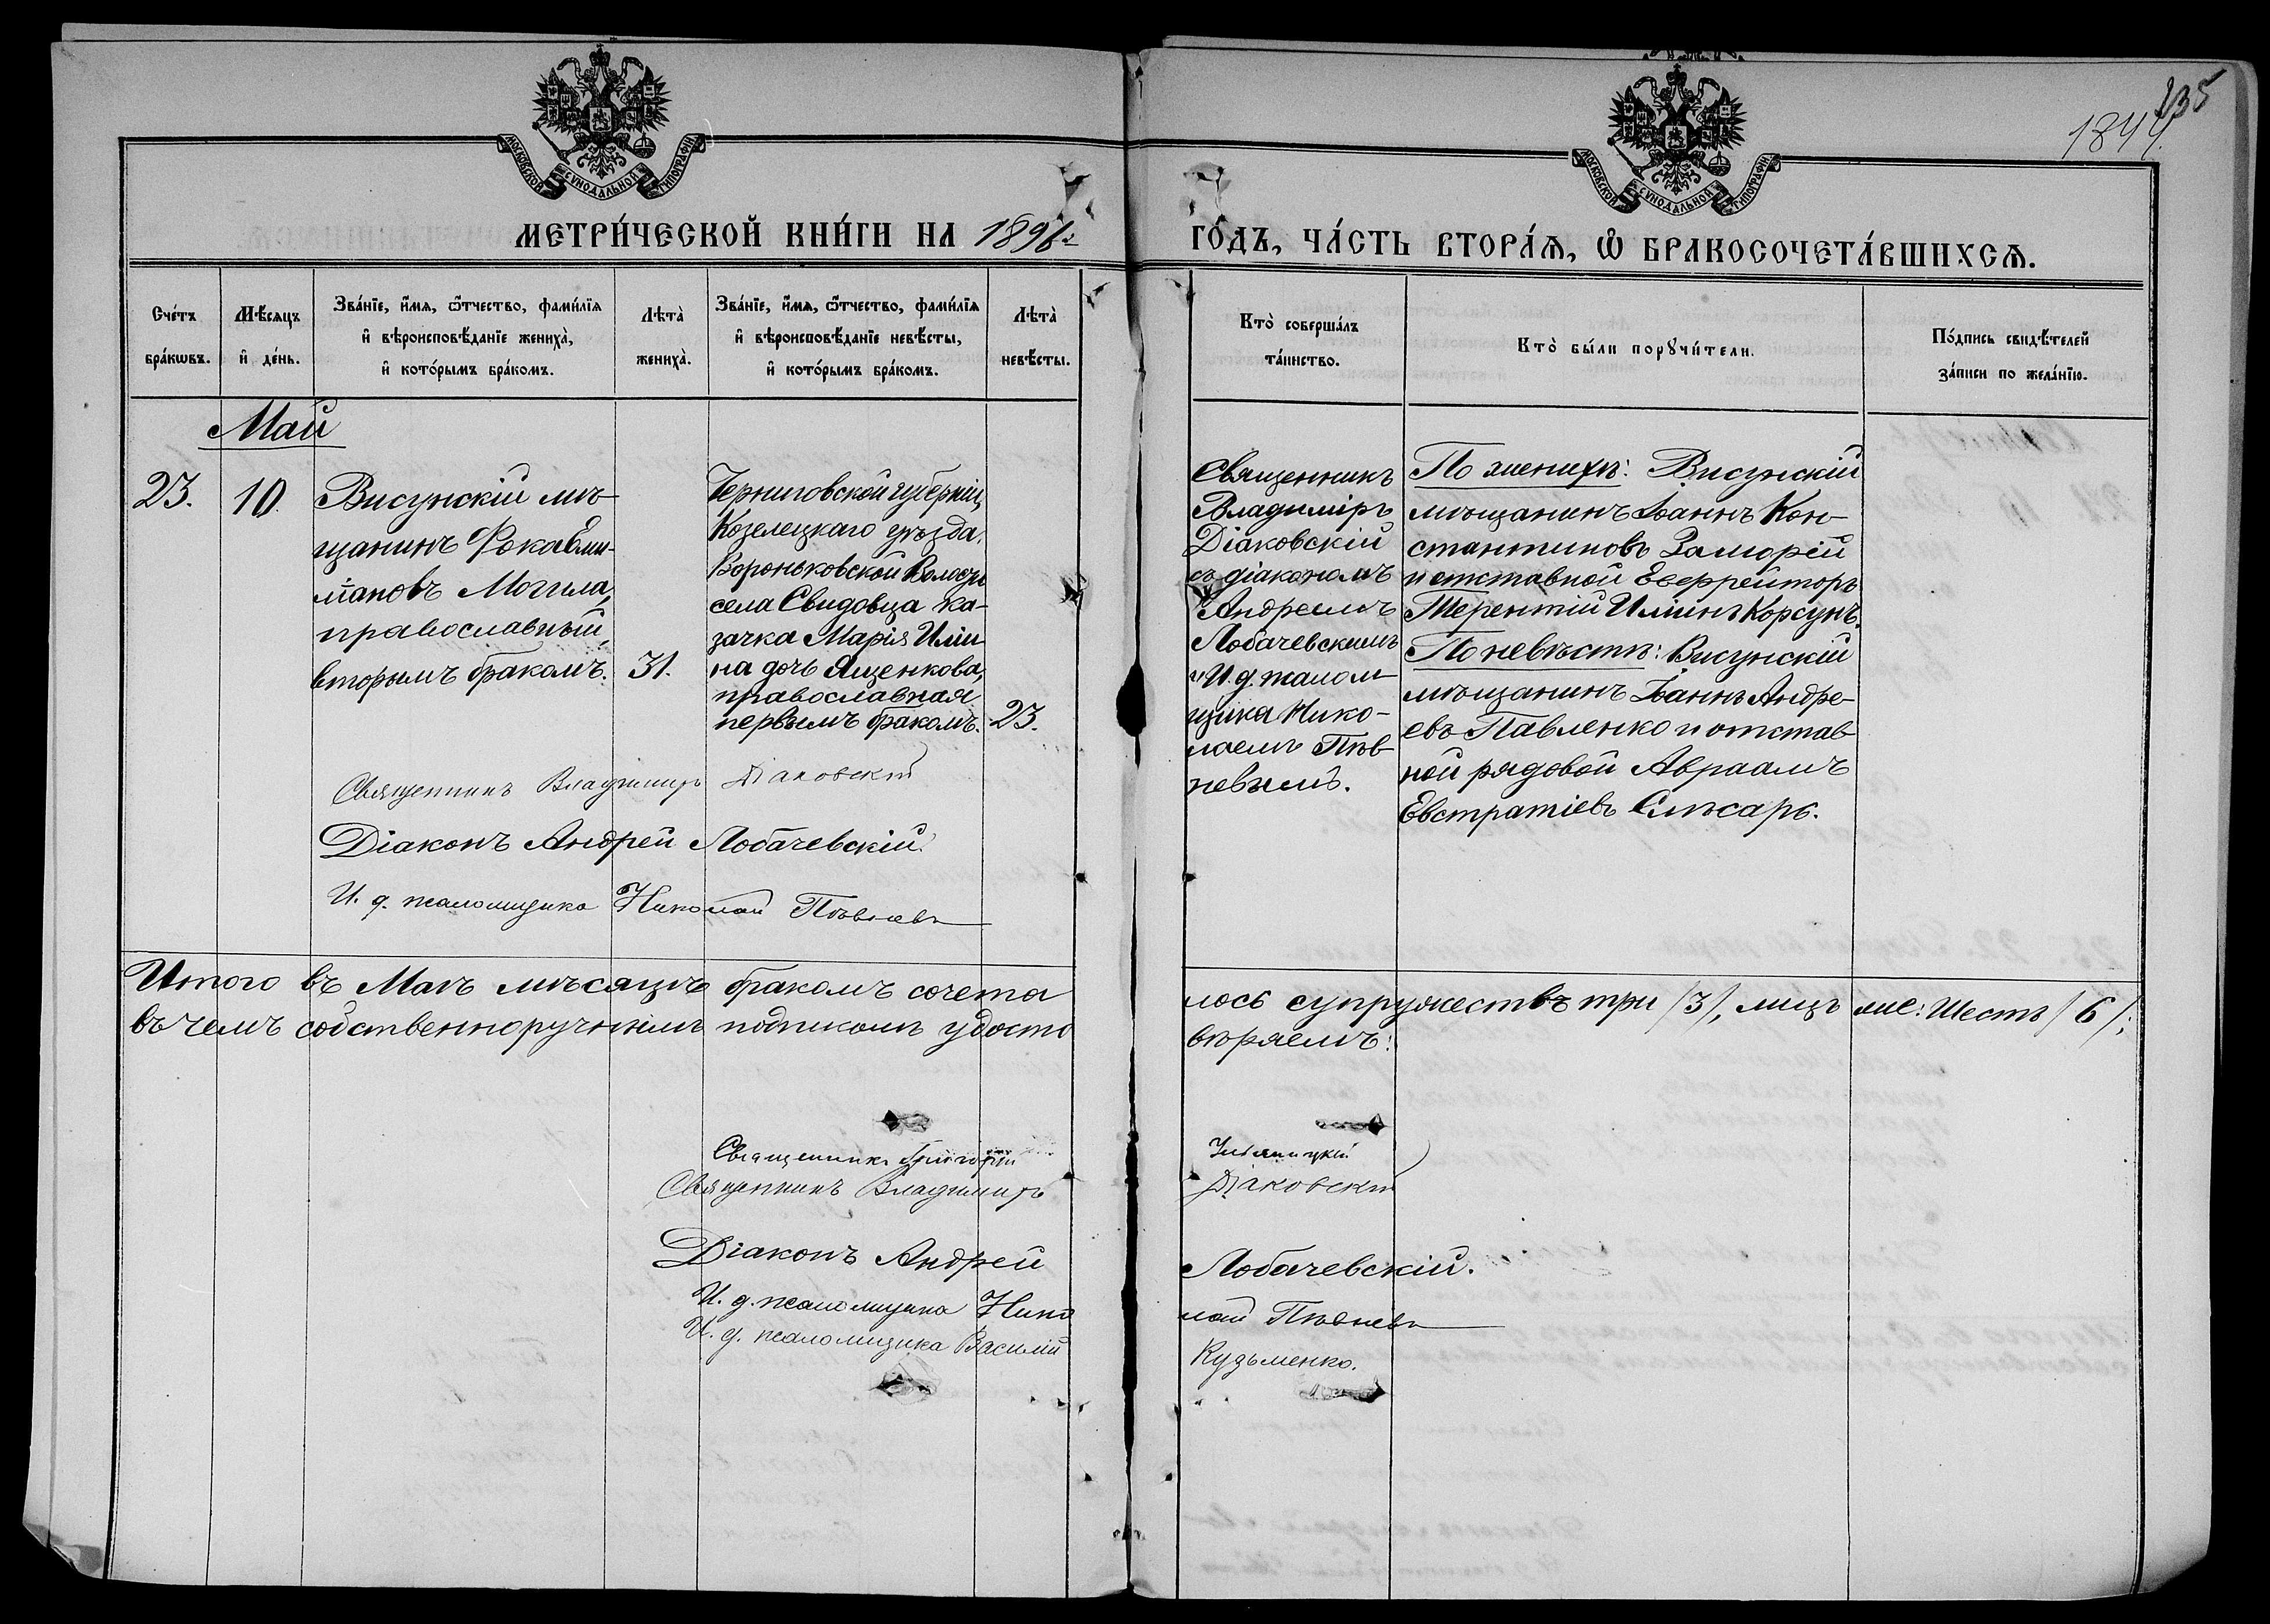 235
1844.
МОСКОВСКОЙ СѴНОДАЛЬНОЙ ТИПОГРАФІИ
МОСКОВСКОЙ СѴНОДАЛЬНОЙ ТИПОГРАФІИ
МЕТРИ́ЧЕСКОЙ КНИ́ГИ НА 1896 г
ГО́ДЪ, ЧА́СТЬ ВТОРА́Ѧ, Ѡ҆ БРАКОСОЧЕТА́ВШИХСѦ.
Сче́тъ
бра́кѡвъ.
Мѣ́сѧцъ
и҆ де́нь.
Зва́нїе, и҆́мѧ, ѻ҆́тчество, фами́лїѧ
и҆ вѣроисповѣ́данїе жениха̀,
и҆ кото́рымъ бра́комъ.
Лѣта̀
жениха̀.
Зва́нїе, и҆́мѧ, ѻ҆́тчество, фами́лїѧ
и҆ вѣроисповѣ́данїе невѣ́сты,
и҆ кото́рымъ бра́комъ.
Лѣта̀
невѣ́сты.
Кто̀ соверша́лъ
та́инство.
Кто̀ бы́ли порꙋчи́тели.
По́дпись свидѣ́телей
за́писи по жела́нїю.
Май
23.
10.
Висунскій мѣ-
щанинъ Фока Еми-
ліановъ Могила,
православный,
вторымъ бракомъ.
31.
Черниговской губерніи,
Козелецкаго уѣзда,
Вороньковской Волости
села Свидовца ка-
зачка Марія Иліи-
на дочь Ященкова,
православная
первымъ бракомъ.
23.
Священникъ
Владиміръ
Діаковскій
съ діакономъ
Андреемъ
Лобачевскимъ
и И. д. псалом-
щика Нико-
лаемъ Пѣв-
невымъ.
По женихѣ: Висунскій
мѣщанинъ Іоаннъ Кон-
стантиновъ Заморій
и отставной Ефрейторъ
Терентій Иліинъ Корсунъ.
По невѣстѣ: Висунскій
мѣщанинъ Іоаннъ Андре-
евъ Павленко и отстав-
ной рядовой Авраамъ
Евстратіевъ Слѣсарь.
Священникъ Владиміръ Діаковскій
Діаконъ Андрей Лобачевскій.
И. д. псаломщика Николай Пѣвневъ
Итого въ Маѣ мѣсяцѣ бракомъ сочета
лось супружествъ три /3/, лицъ же: Шесть /6/;
въ чемъ собственноручнымъ подписомъ удосто
вѣряемъ:
Священникъ Григорій
Священникъ Владиміръ Діаковскій
Діаконъ Андрей Лобачевскій.
И. д. псаломщика Николай Пѣвневъ
И. д. псаломщика Василій Кузьменко.